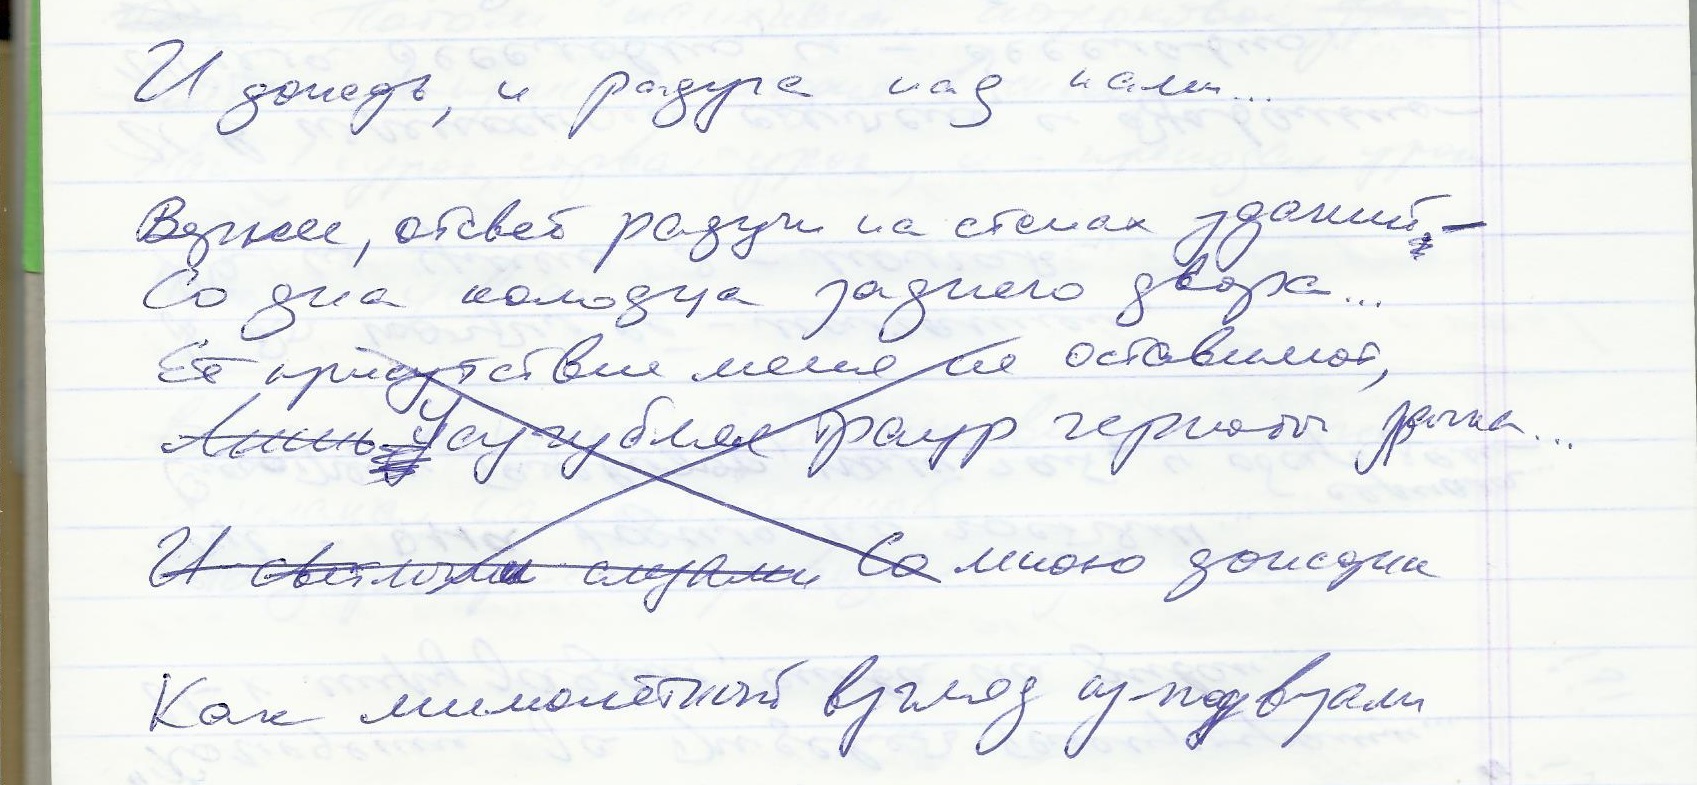 И дождь, и радуга над нами...
Вернее, отсвет радуги на стенах зданий, –
Со дна колодца заднего двора...
Её присутствие меня не
Лишь Усугубляя траур черноты зрачка...
И светлыми слезами Со мною дождик
Как мимолётный взгляд из-под вуали